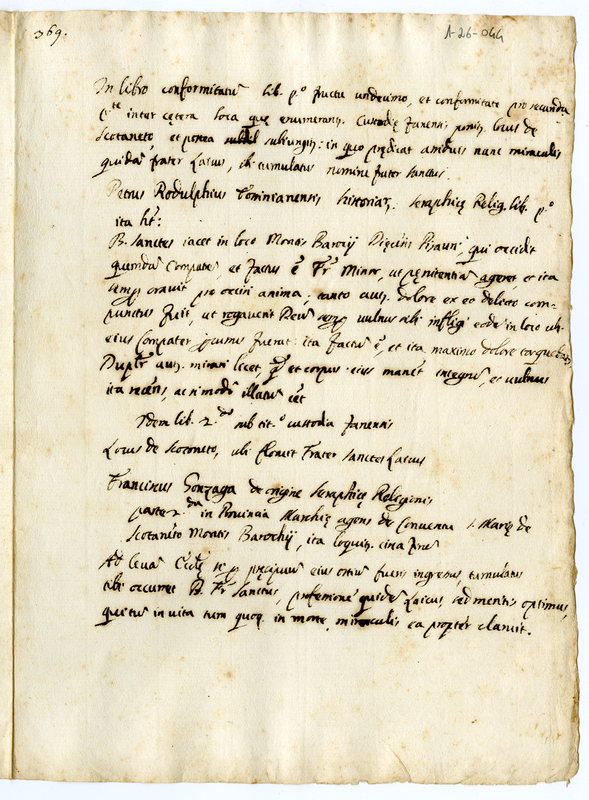 369.
1-26-044
In libro conformitatũ lib. p.º fructu undecimo, et conformitate pro secunda
p.te inter cętera loca quę enumerant. Custodię Fanensis ponit. locus de
Scotaneto et postea subiungit: in quo prędicat assiduis nunc miraculis
quidã frater Laicus, ibi tumulatus nomine frater Sanctus.
Petrus Rodulphius Tossinianensis historiar. Seraphicę Relig. lib. p.º
ita ht:
B. Sanctes iacet in loco Montis Barocij Dięcesis Pisauri, qui occidit
quendã Compatrẽ, et factus ẽ Fr̃ Minor, ut pęnitentiã ageret, et ita
semp oravit pro occisi anima, tanto aut. dolore ex eo delicto com-
punctus fuit, ut rogaverit Deũ semp vulnus sibi infligi eodẽ in loco ubi
eius Compater percussus fuerat: ita factũ ẽ, et ita maximo dolore torquebat.
Duplr̃ aut. mirari licet, qđ et corpus eius manet integrũ, et vulnus
ita recẽs, ac si modo illatũ eẽt
Idem lib. 2.do sub tit.º custodia Fanensis
Locus de Scotoneto, ubi floruit Frater Sanctes Laicus
Franciscus Gonzaga de origine Seraphicę Religionis
parte 2.da in Provincia Marchię agens de Conventu S. Marię de
Scotaneto Montis Barochij, ita loquit. circa finẽ
Ad levã Ecclę p pręcipuũ eius ostiũ fueris ingressus, tumulatus
tibi occurret B. Fr̃ Sanctus, professione quidẽ Laicus, sed meritis optimus,
qui tũ in vita tum quoq. in morte, miraculis ea propter claruit.